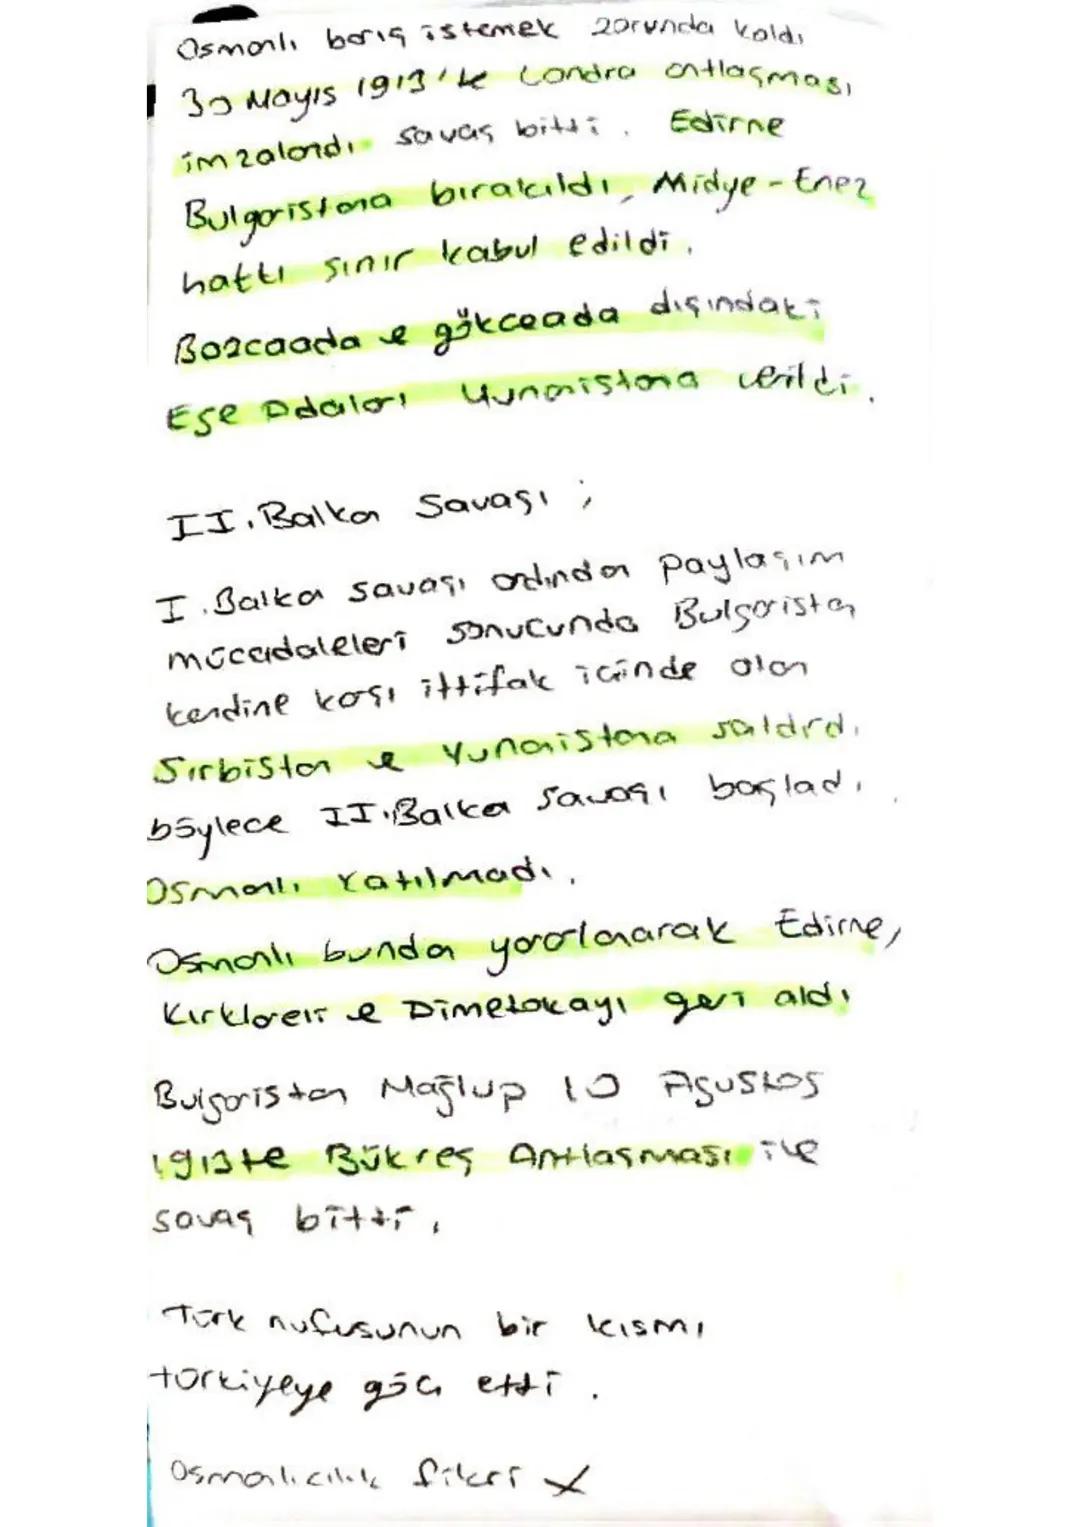 Osmanlı barış istemek zorunda kaldı
30 Mayıs 1913'te Londra antlaşması
imzalandı savaş bitti. Edirne
Bulgaristana bırakıldı, Midye-Enez
hattı sınır kabul edildi.
Bozcaada ve gökceada dışındaki
Ege Adaları Yunanistana verildi.
II. Balkan Savaşı ;
I. Balkan savaşı ardından paylaşım
mücadaleleri sonucunda Bulgaristan
kendine karşı ittifak içinde olan
Sırbistan ve Yunanistana saldırdı
böylece II. Balkan Savaşı başladı.
Osmanlı Katılmadı.
Osmanlı bundan yararlanarak Edirne,
Kırklareli ve Dimetokayı geri aldı
Bulgaristan Mağlup 10 Ağustos
1913te Bükreş Antlaşması ile
savaş bitti.
Türk nufusunun bir kısmı
türkiyeye göç etti.
Osmanlıcılık fikri X